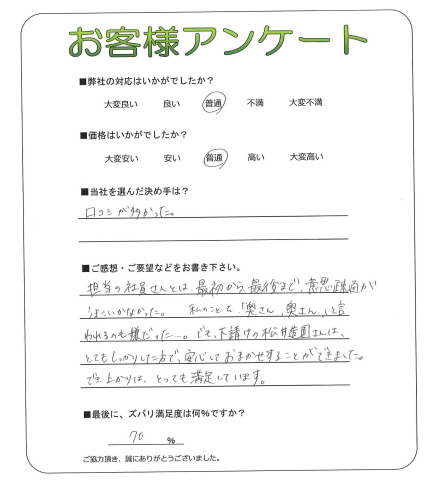 お客様アンケート
■弊社の対応はいかがでしたか？
大変良い 良い 普通 不満 大変不満
■価格はいかがでしたか？
大変安い 安い 普通 高い 大変高い
■当社を選んだ決め手は？
口コミが多かった。
■ご感想・ご要望などをお書き下さい。
担当の社員さんとは、最初から、最後まで、意思疎通が
うまくいかなかった。 私のことを、「奥さん、奥さん」と言
われるのも嫌だった…。でも、下請けの松井造園さんは、
とてもしっかりした方で、安心しておまかせすることができました。
でき上がりは、とっても満足しています。
■最後に、ズバリ満足度は何%ですか？
70 %
ご協力頂き、誠にありがとうございました。